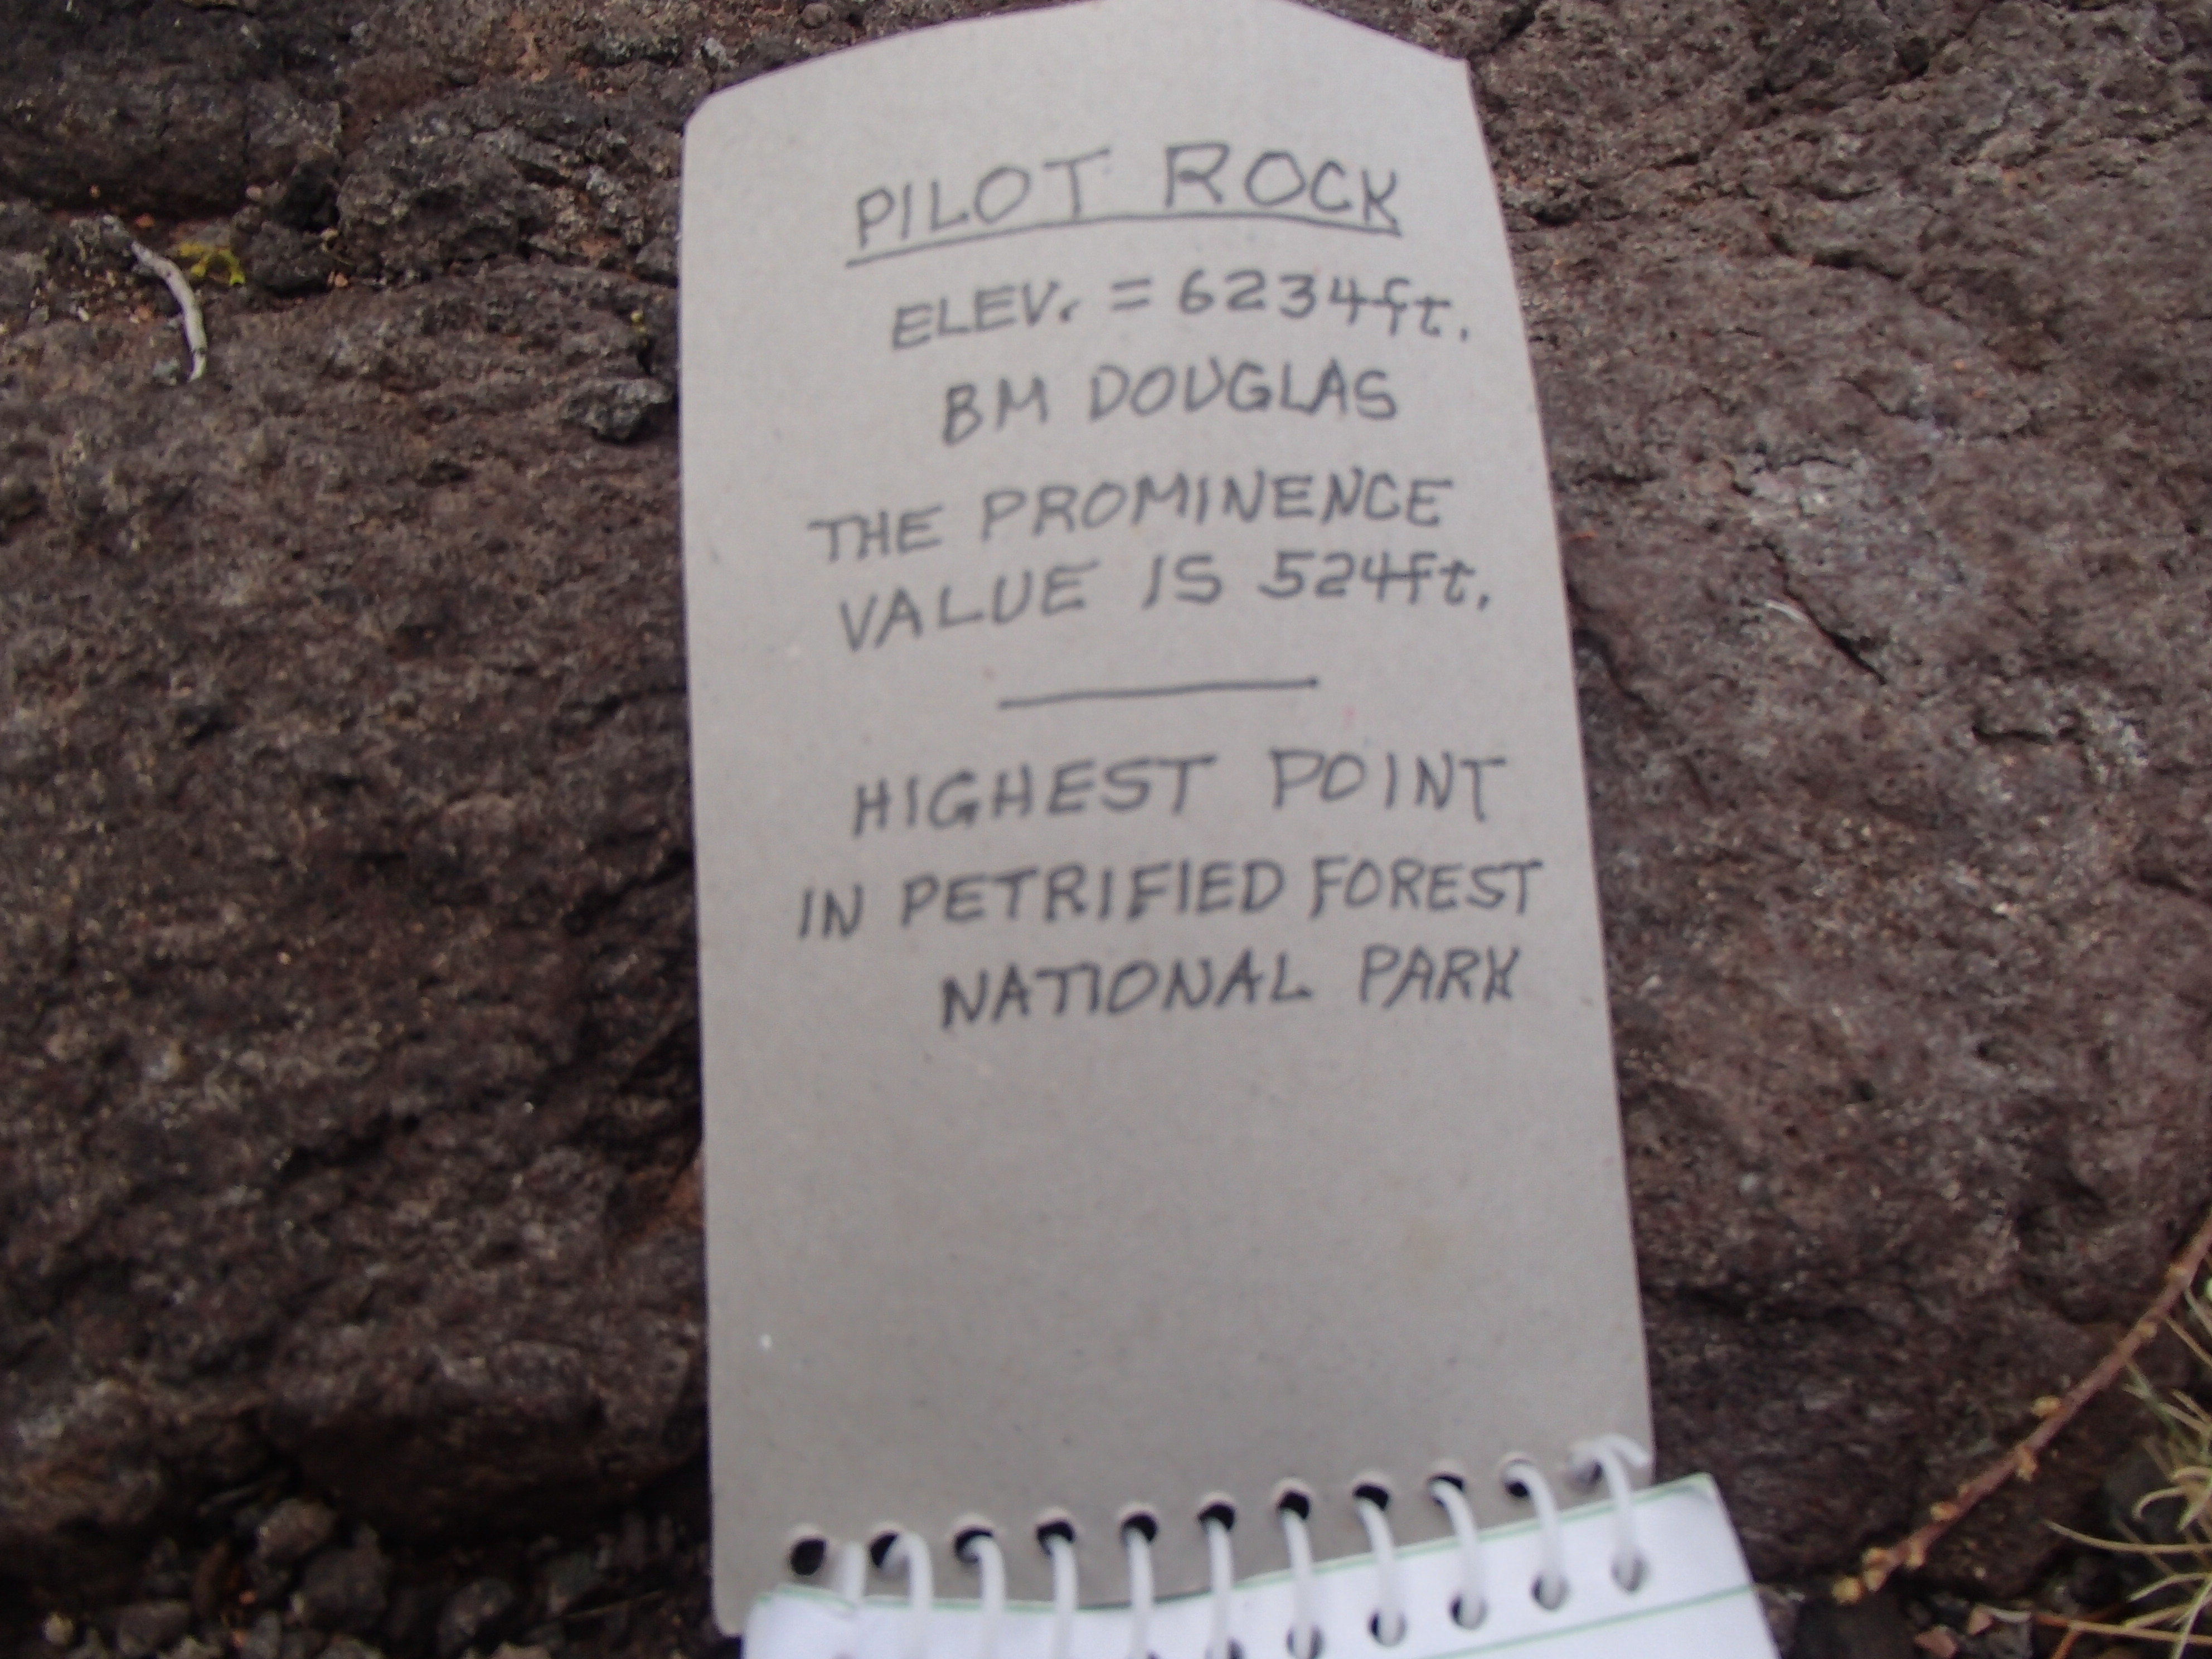 PILOT ROCK
ELEV. = 6234ft.
BM DOUGLAS
THE PROMINENCE
VALUE IS 524ft.
HIGHEST POINT
IN PETRIFIED FOREST
NATIONAL PARK